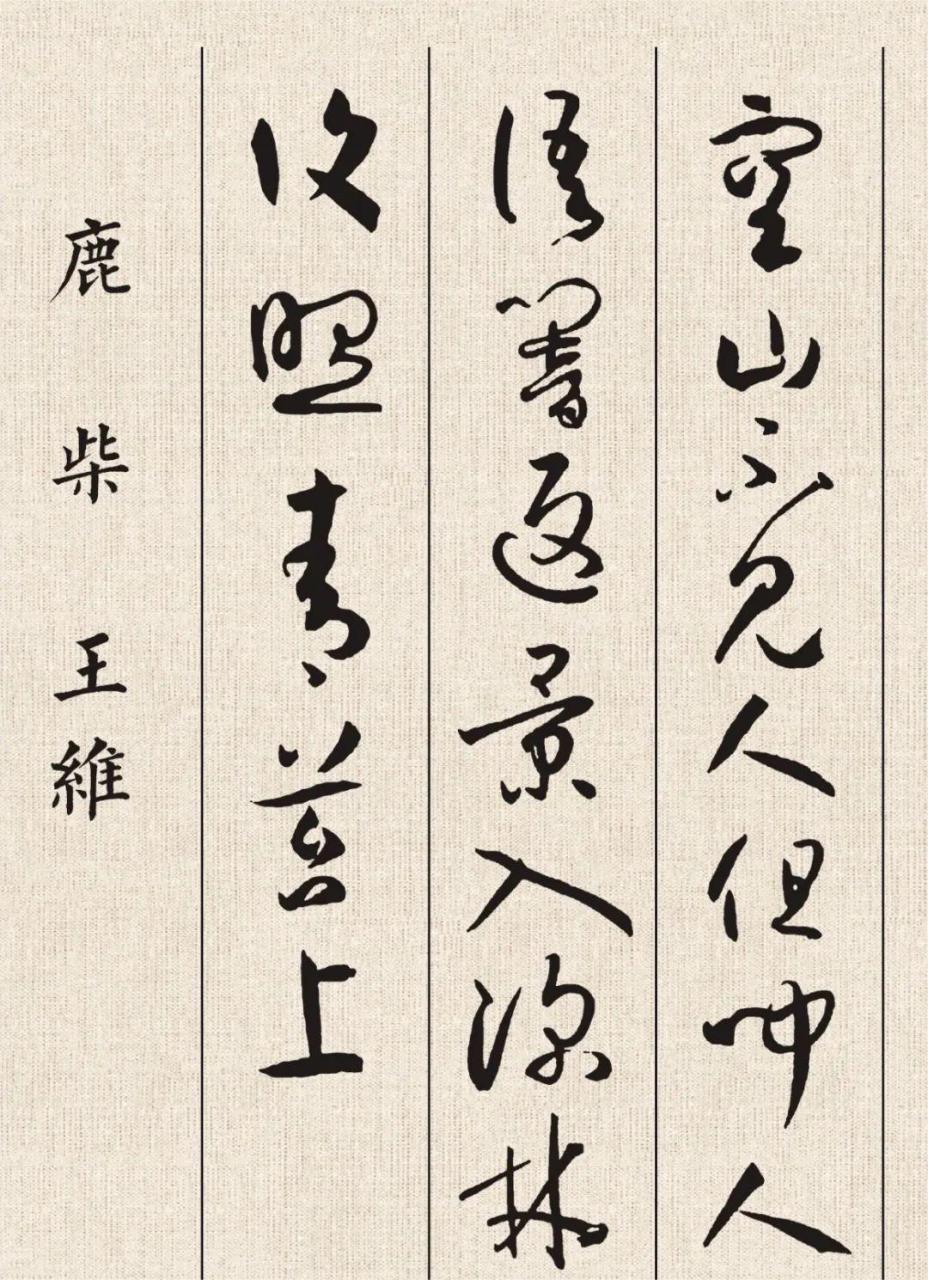 空山不見人但聞人
語響返景入深林
復照青苔上
鹿柴 王維